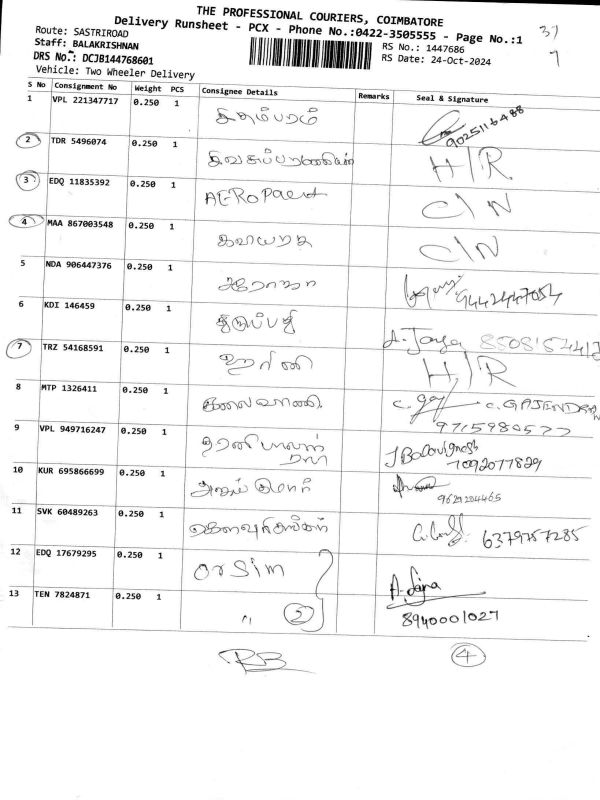 THE PROFESSIONAL COURIERS, COIMBATORE
Delivery Runsheet - PCX - Phone No.:0422-3505555 - Page No.:1
37
7
Route: SASTRIROAD
Staff: BALAKRISHNAN
DRS No.: DCJB144768601
Vehicle: Two Wheeler Delivery
RS No.: 1447686
RS Date: 24-Oct-2024
S No Consignment No Weight PCS Consignee Details Remarks Seal & Signature
1 VPL 221347717 0.250 1 சிதம்பரம் 9025116488
2 TDR 5496074 0.250 1 H/R
3 EDQ 11835392 0.250 1 C/N
4 MAA 867003548 0.250 1 C/N
5 NDA 906447376 0.250 1 ரோஜா 9442447054
6 KDI 146459 0.250 1 திருப்பதி A. Jaya
7 TRZ 54168591 0.250 1 ஹரிணி H/R
8 MTP 1326411 0.250 1 கலைவாணி C. GAJENDRAN
9715980577
9 VPL 949716247 0.250 1 தரணிபாலன் JBalavignesh
7092077829
10 KUR 695866699 0.250 1 9629204465
11 SVK 60489263 0.250 1 6379757285
12 EDQ 17679295 0.250 1 Orsim
13 TEN 7824871 0.250 1 " 2 8940001027
RB 4